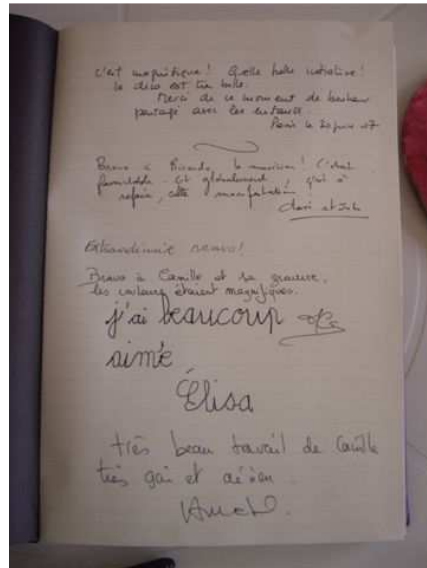 C'est magnifique ! Quelle belle initiative !
la déco est très belle.
Merci de ce moment de bonheur
partagé avec les enfants.
Paris le 20 juin 07
Bravo à Ricardo, le musicien ! C'était
formidable. Et globalement, à
refaire, cette manifestation !
Extraordinaire bravo !
Bravo à Camille et sa gravure,
les couleurs étaient magnifiques.
j'ai beaucoup
aimé
Élisa
très beau travail de Camille
très gai et aérien.